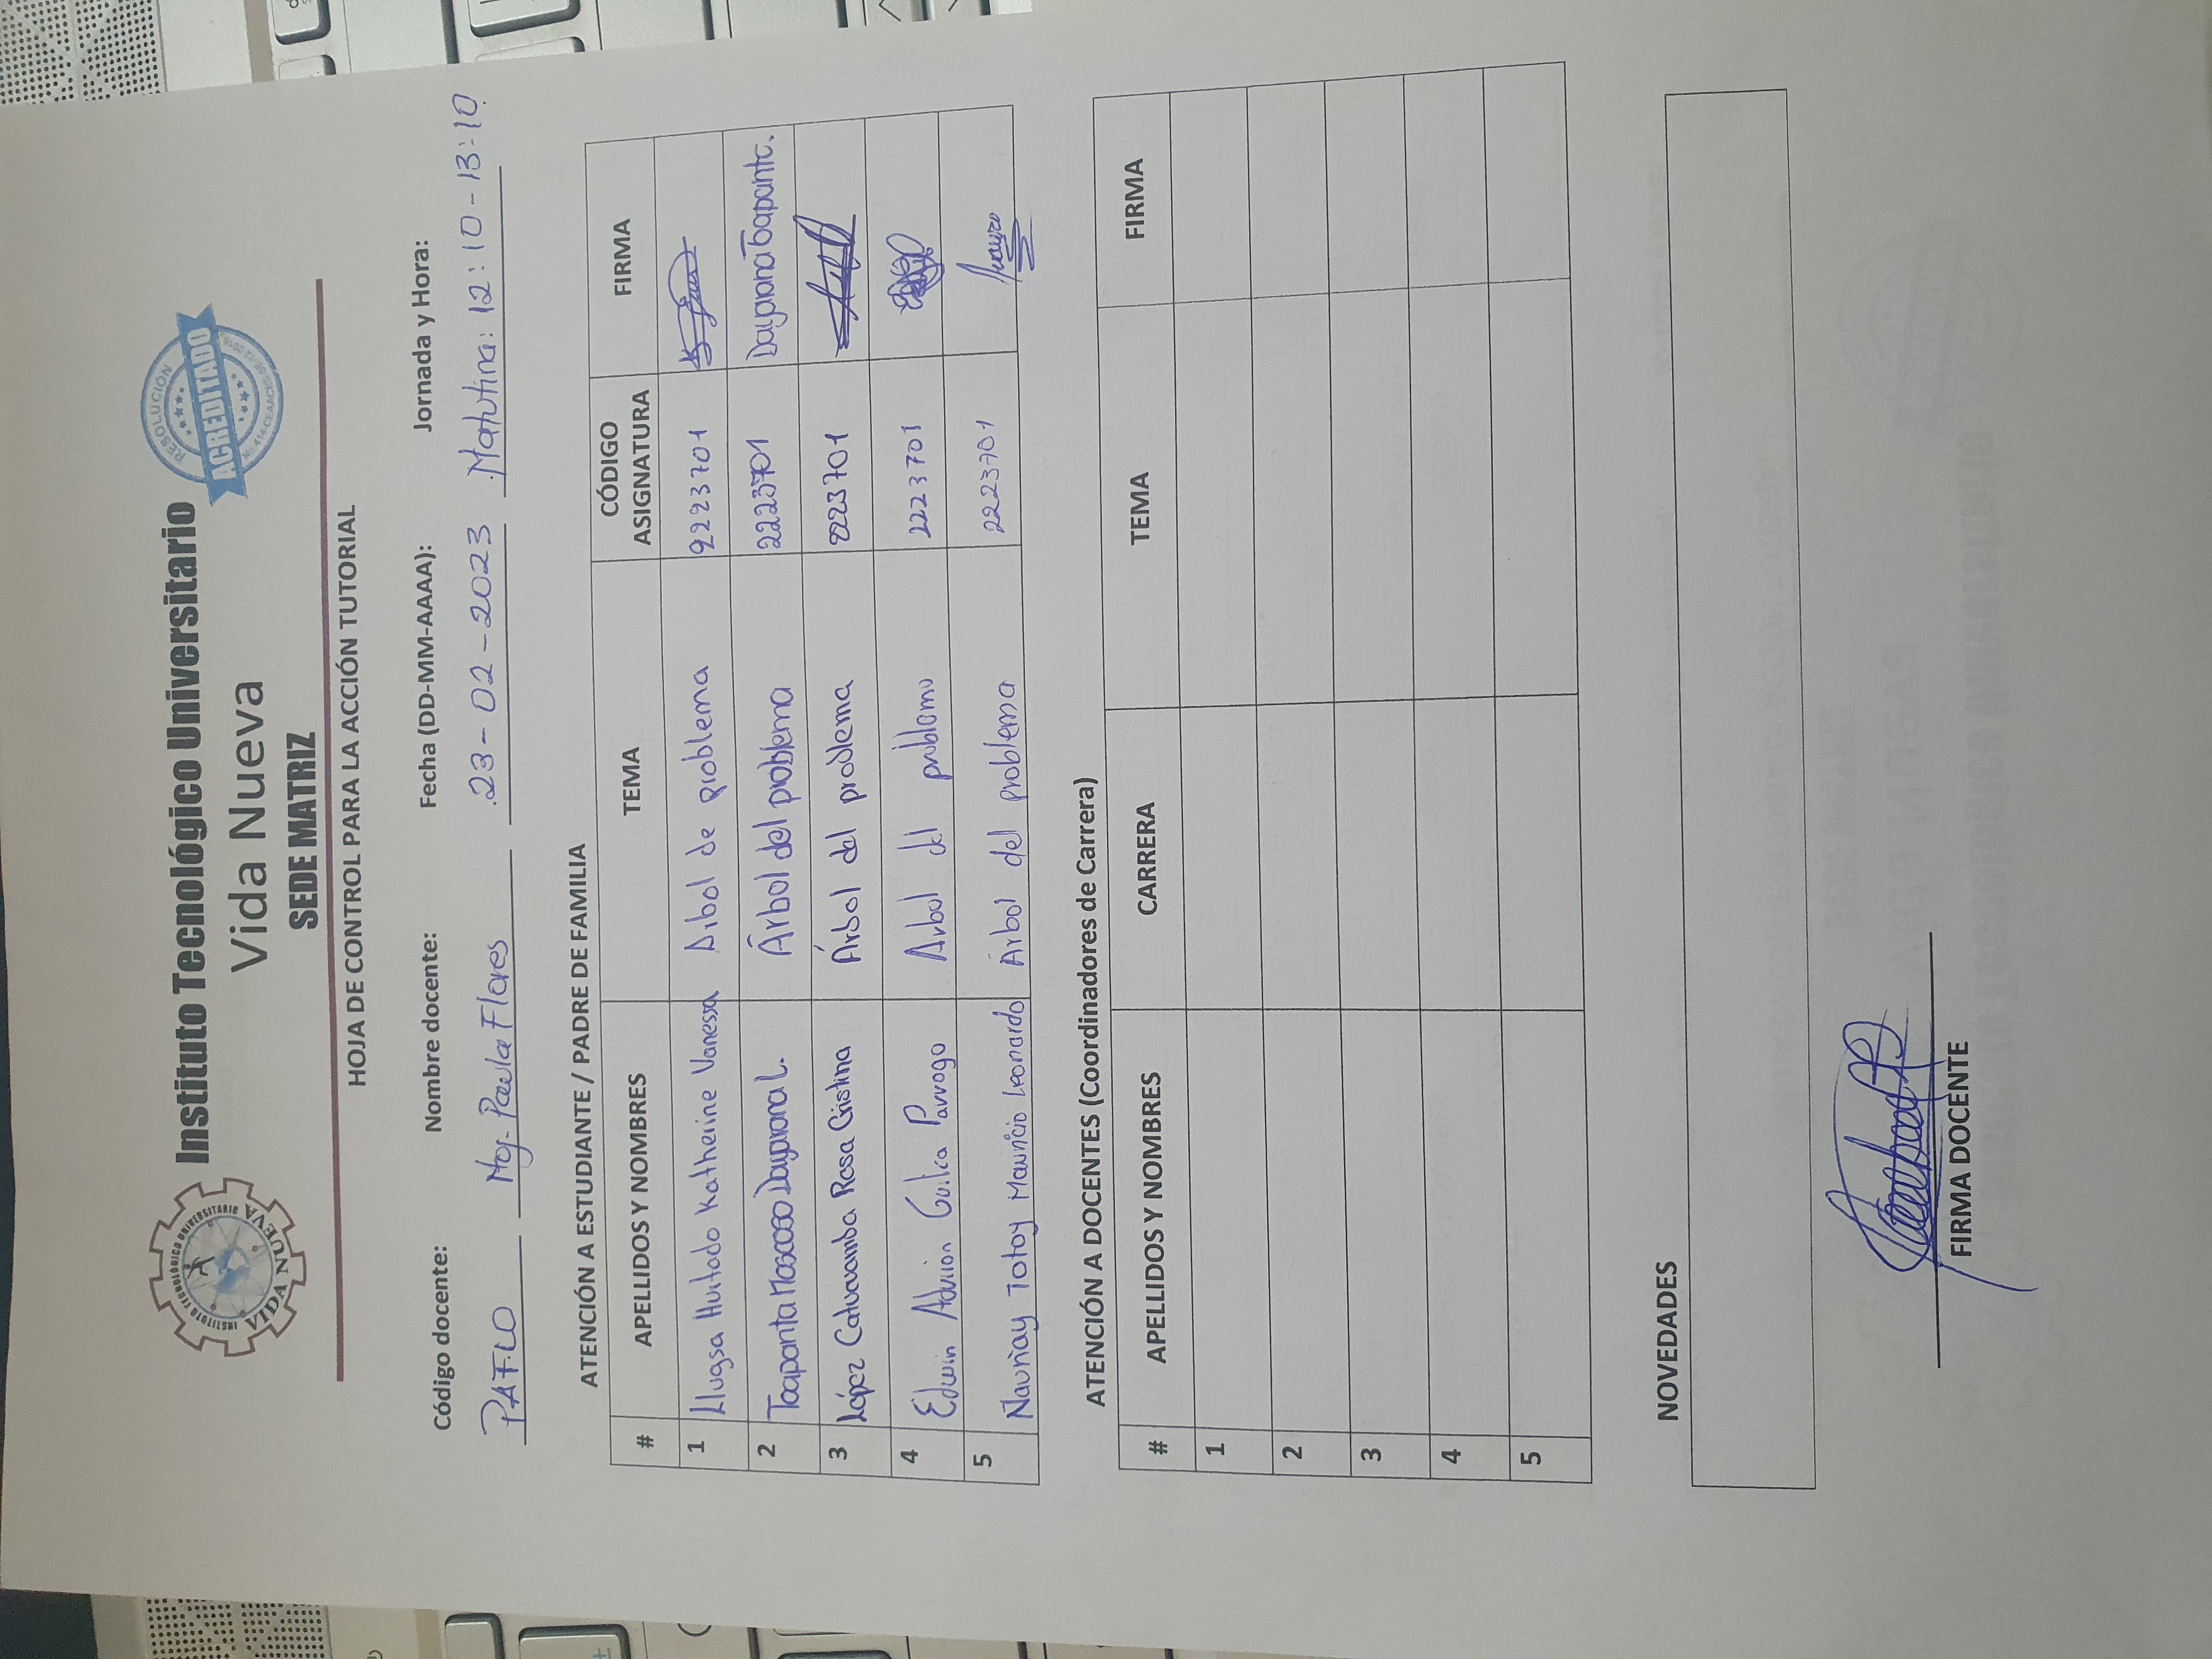 INSTITUTO TECNOLÓGICO UNIVERSITARIO
VIDA NUEVA
Instituto Tecnológico Universitario
Vida Nueva
SEDE MATRIZ
RESOLUCIÓN
ACREDITADO
HOJA DE CONTROL PARA LA ACCIÓN TUTORIAL
Código docente: Nombre docente: Fecha (DD-MM-AAAA): Jornada y Hora:
PAFLO Mg. Paula Flores 23-02-2023 Matutina: 12:10-13:10
ATENCIÓN A ESTUDIANTE / PADRE DE FAMILIA
# APELLIDOS Y NOMBRES TEMA CÓDIGO ASIGNATURA FIRMA
1 Llugsa Hurtado Katherine Vanessa Arbol de problema 2223701
2 Toapanta Moscoso Dayanana L. Árbol del problema 2223701 Dayanana Toapanta.
3 López Catucuamba Rosa Cristina Árbol del problema 2223701
4 Edwin Adrión Guilca Parrago Arbol del problema 2223701
5 Ñauñay Totoy Mauricio Leonardo Arbol del problema 2223701
ATENCIÓN A DOCENTES (Coordinadores de Carrera)
# APELLIDOS Y NOMBRES CARRERA TEMA FIRMA
1
2
3
4
5
NOVEDADES
FIRMA DOCENTE